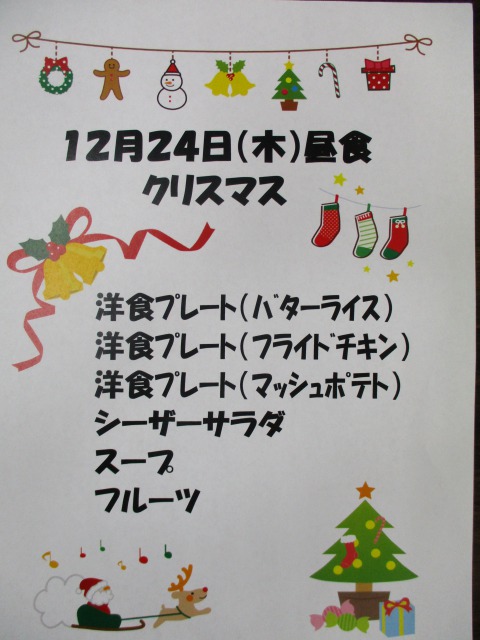 12月24日(木)昼食
クリスマス
洋食プレート(バターライス)
洋食プレート(フライドチキン)
洋食プレート(マッシュポテト)
シーザーサラダ
スープ
フルーツ